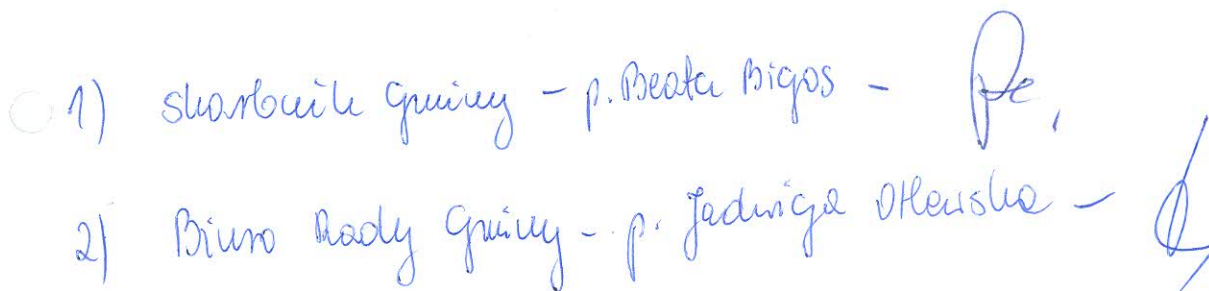 1) Skarbnik Gminy - p. Beata Bigos -
2) Biuro Rady Gminy - p. Jadwiga